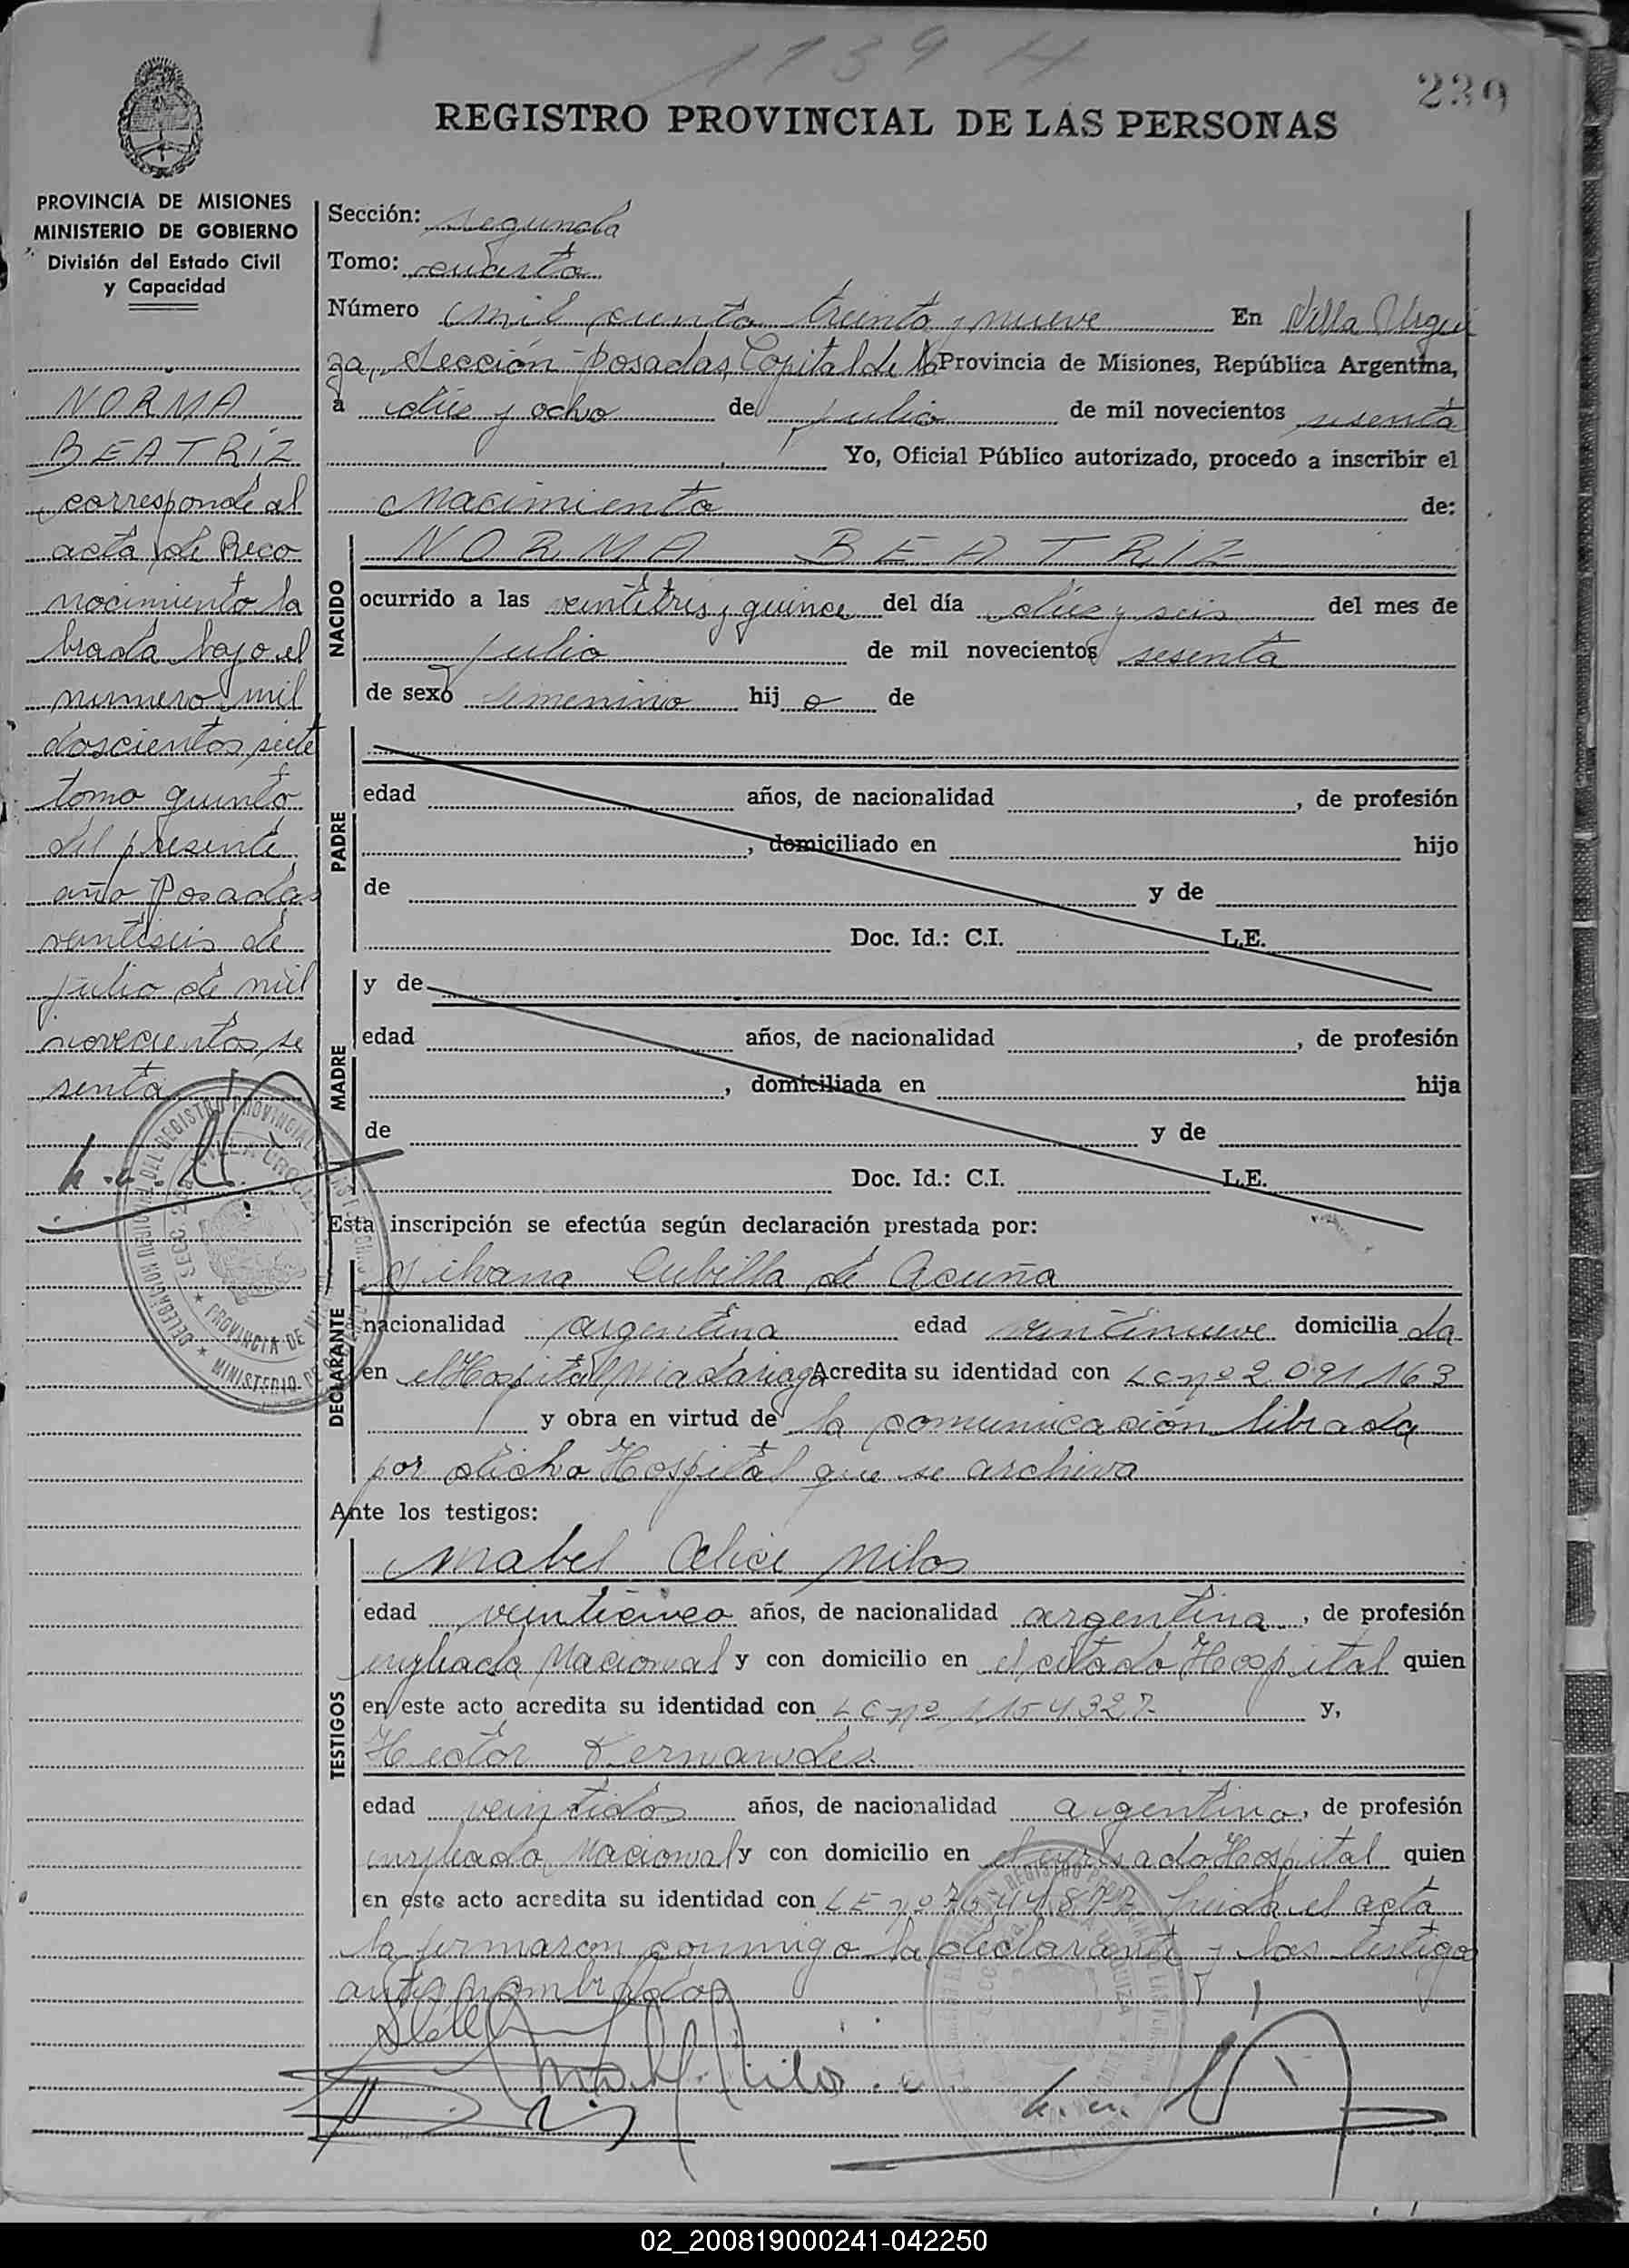 1139 H
239
REGISTRO PROVINCIAL DE LAS PERSONAS
PROVINCIA DE MISIONES
MINISTERIO DE GOBIERNO
División del Estado Civil
y Capacidad
NORMA
BEATRIZ
corresponde al
acta de Reco
nocimiento la
brada bajo el
numero mil
doscientos siete
tomo quinto
del presente
año Posadas
veintiseis de
julio de mil
novecientos se
senta
Sección: segunda
Tomo: cuarto
Número mil ciento treinta y nueve En Villa Urqui
za, Sección Posadas, Capital de la Provincia de Misiones, República Argentina,
a dies y ocho de julio de mil novecientos sesenta
Yo, Oficial Público autorizado, procedo a inscribir el
Nacimiento de:
NACIDO
NORMA BEATRIZ
ocurrido a las veintitres y quince del día dies y seis del mes de
julio de mil novecientos sesenta
de sexo femenino hij a de
PADRE
edad años, de nacionalidad , de profesión
, domiciliado en hijo
de y de
Doc. Id.: C.I. L.E.
MADRE
y de
edad años, de nacionalidad , de profesión
, domiciliada en hija
de y de
Doc. Id.: C.I. L.E.
Esta inscripción se efectúa según declaración prestada por:
DECLARANTE
Cubilla de Acuña
nacionalidad argentina edad veintinueve domicilia da
en el Hospital Madariaga Acredita su identidad con LC nº 2091163
y obra en virtud de la comunicación librada
por dicho Hospital que se archiva
Ante los testigos:
TESTIGOS
Mabel Alice Milos
edad veinticinco años, de nacionalidad argentina, de profesión
empleada Nacional y con domicilio en el citado Hospital quien
en este acto acredita su identidad con LC nº 1154327 y,
Hector Fernandes
edad veintidos años, de nacionalidad argentino, de profesión
empleado Nacional y con domicilio en el Hospital quien
en este acto acredita su identidad con LE nº leida el acta
la firmaron conmigo la declarante y los testigos
antes nombrados
02_200819000241-042250